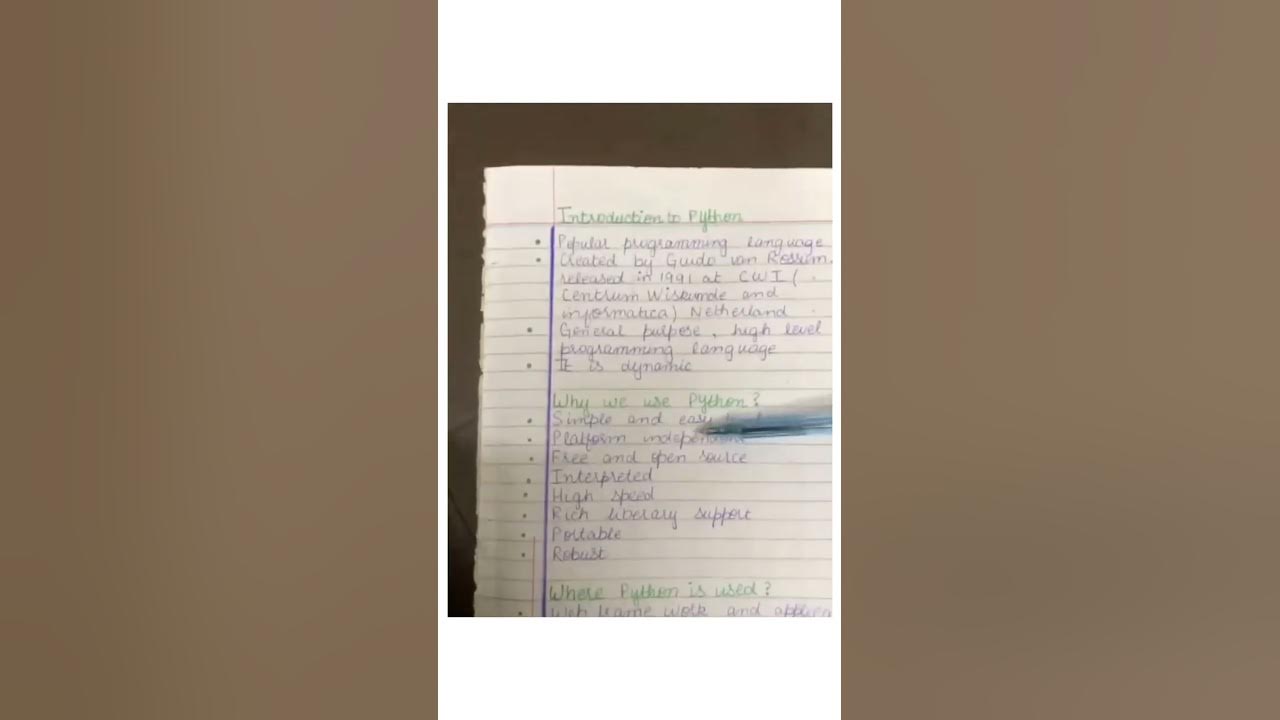 Introduction to Python
• Popular programming language
• Created by Guido van Rossum.
released in 1991 at CWI (
Centrum Wiskunde and
informatica) Netherland
• General purpose, high level
programming language
• It is dynamic
Why we use Python?
• Simple and easy
• Platform independent
• Free and open source
• Interpreted
• High speed
• Rich liberary support
• Portable
• Robust
Where Python is used?
• Web frame work and